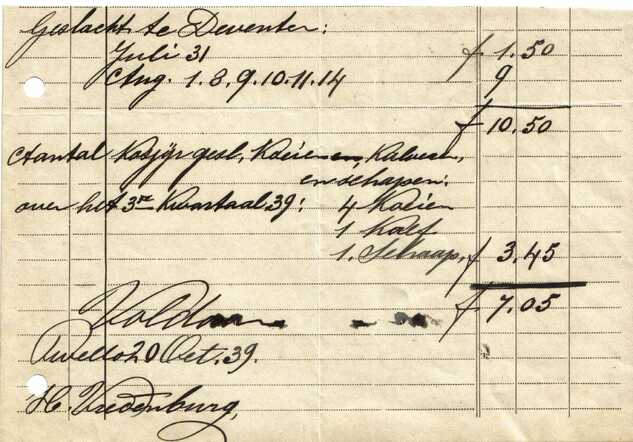 Geslacht te Deventer:
Juli 31 f 1.50
Aug. 1.8.9.10.11.14 9
f 10.50
Aantal Kosjer gesl. Koeien, Kalveren,
en schapen.
over het 3de Kwartaal.39: 4 Koeien
1 Kalf
1. Schaap, f 3.45
f 7.05
Voldaan
Twello 20 Oct. 39.
H. Vredenburg,